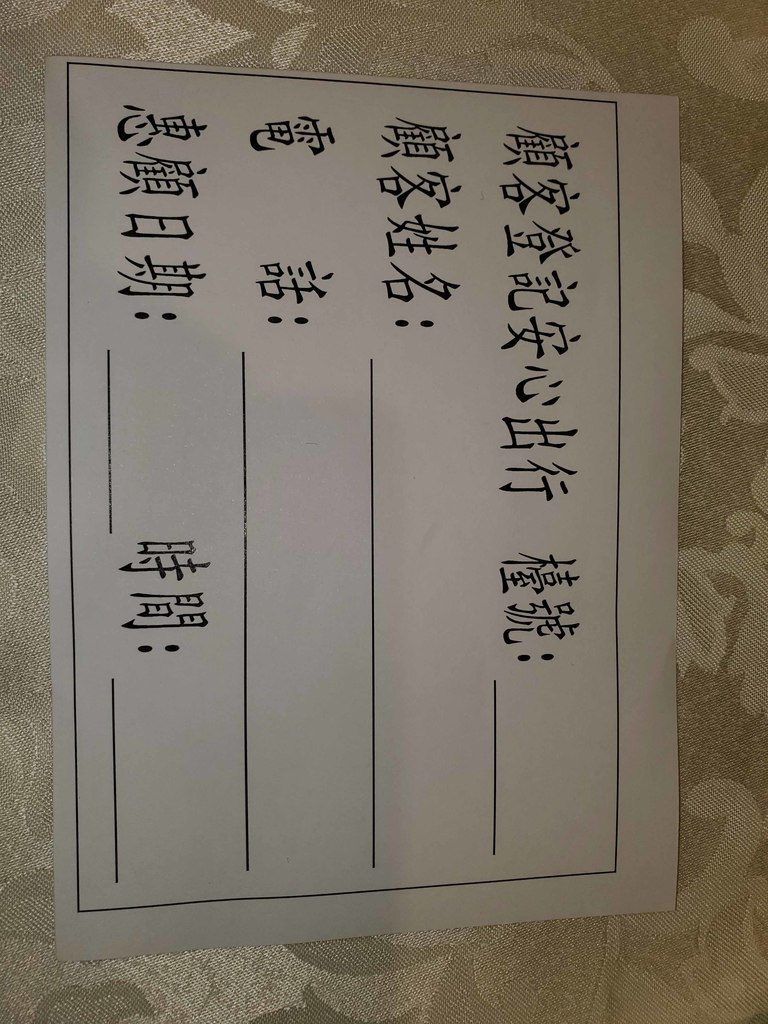 顧客登記安心出行 檯號:
顧客姓名:
電 話:
惠顧日期: 時間: